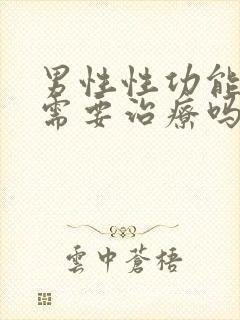 男性性功能
需要治療吗
雲中蒼梧